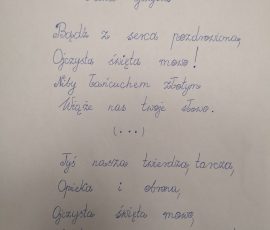 Bądź z serca pozdrowiona,
Ojczysta święta mowo!
Niby łańcuchem złotym
Wiąże nas twoje słowo.
(...)
Tyś nasza twierdza, tarcza,
Opieka i obrona,
Ojczysta święta mowo,